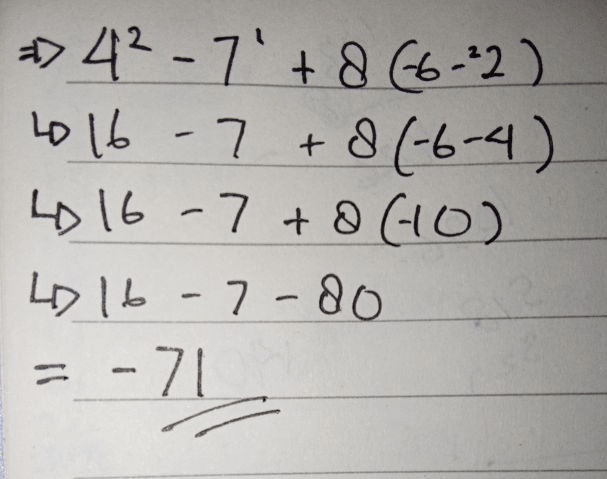 ⇒ 4² - 7¹ + 8 (-6 - ²2)
↳ 16 - 7 + 8 (-6 - 4)
↳ 16 - 7 + 8 (-10)
↳ 16 - 7 - 80
= - 71